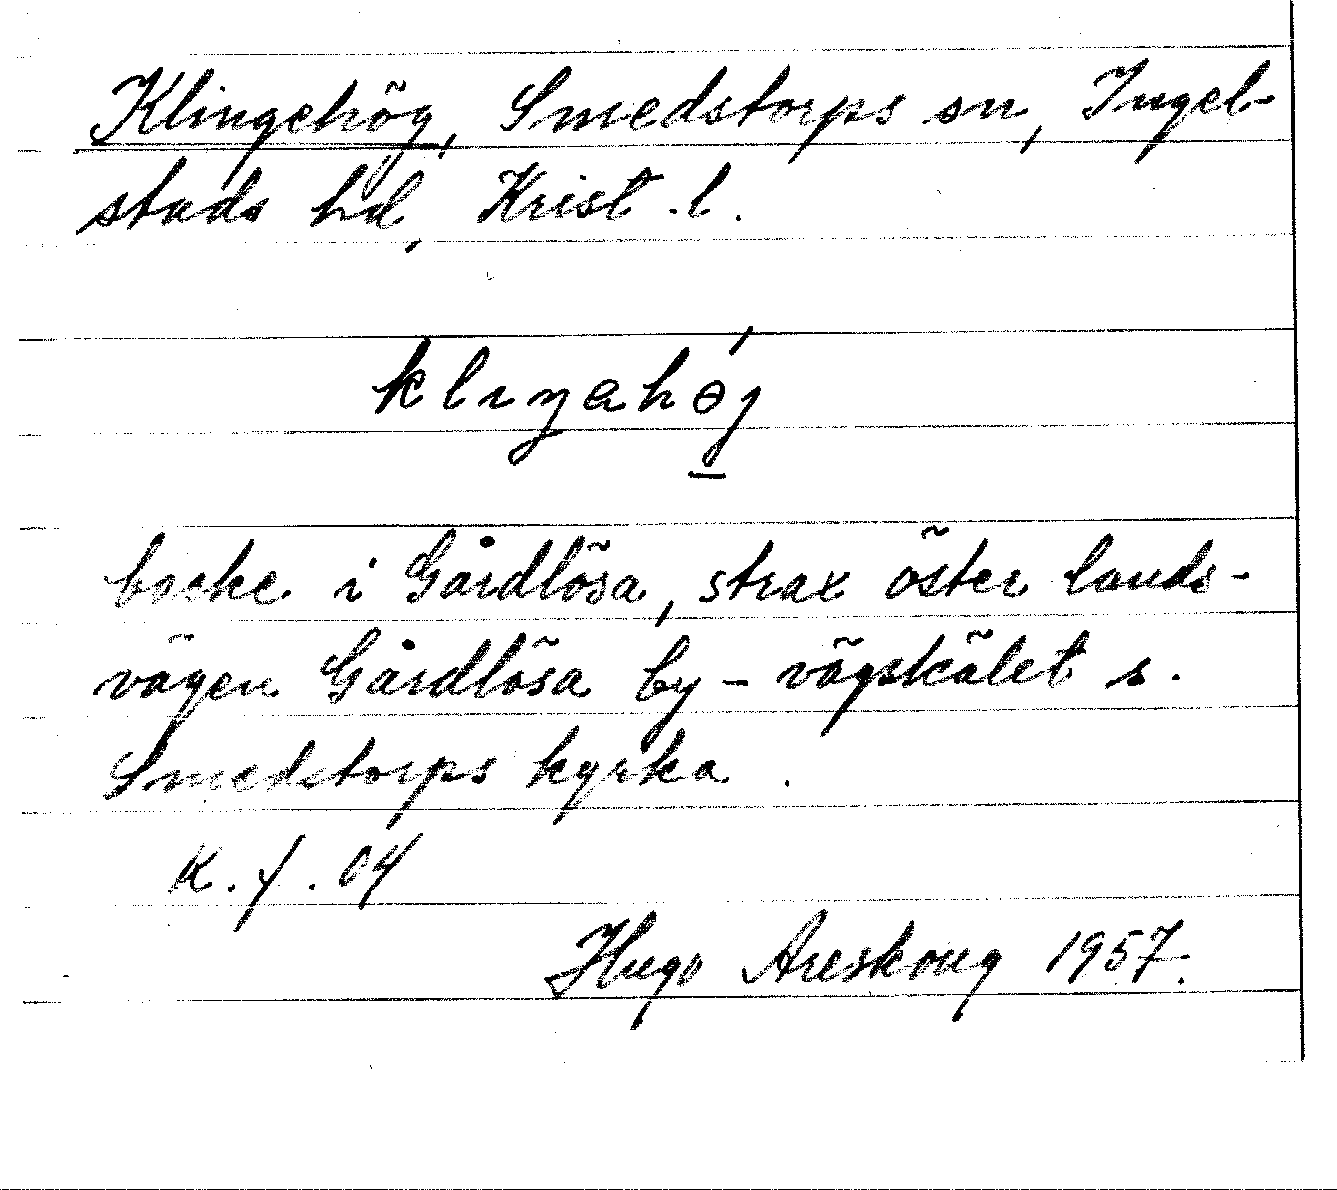 Klingehög, Smedstorps sn, Ingel-
stads hd, Krist. l.
klıŋahǿ̱j
backe i Gårdlösa, strax öster lands-
vägen Gårdlösa by - vägskälet s.
Smedstorps kyrka.
K. f. 04
Hugo Areskoug 1957.